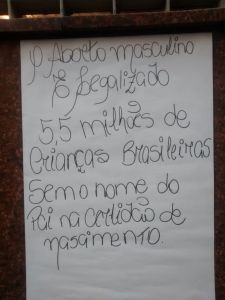 O Aborto masculino
É legalizado
5,5 milhões de
Crianças Brasileiras
Sem o nome do
Pai na certidão de
nascimento.